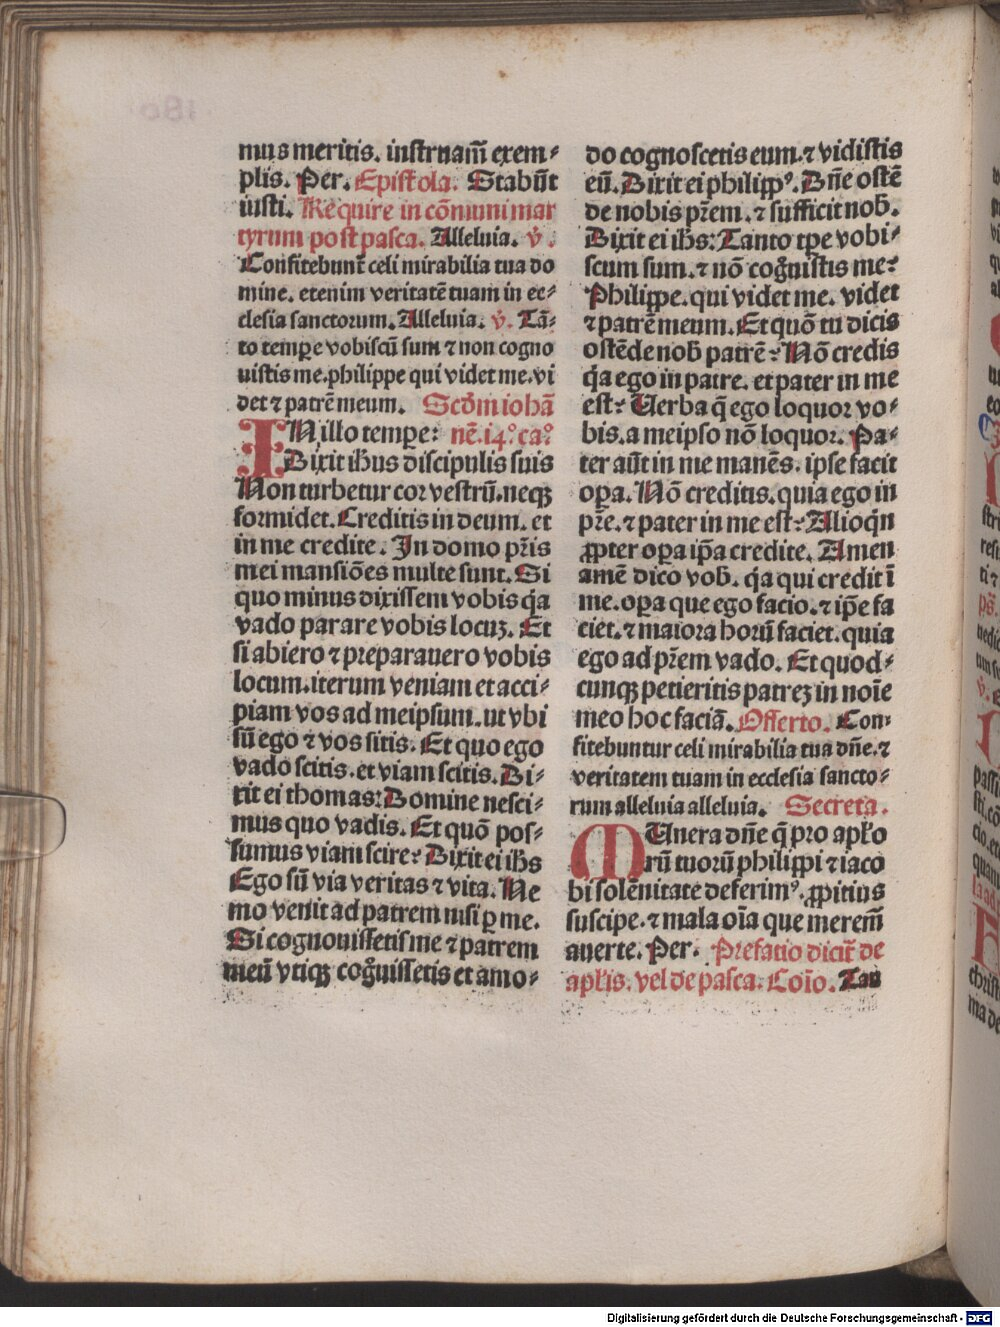 mus meritis. instruam̄ exem⸗
plis. Per. Epistola. Stabūt
iusti. Require in cōmuni mar
tyrum post pasca. Alleluia. v̇.
Confitebunt̄ celi mirabilia tua do
mine. etenim veritatē tuam in ec⸗
clesia sanctorum. Alleluia. v̇. Tā⸗
to tempꝑe vobiscū sum ⁊ non cogno
uistis me. philippe qui videt me. vi
det ⁊ patrē meum. Scd̄m iohā
IN illo tempꝑe: nē. 14.° ca°
Dixit ihūs discipulis suis
Non turbetur cor vestrū. neqꝫ
formidet. Creditis in deum. et
in me credite. In domo pr̄is
mei mansiōes multe sunt. Si
quo minus dixissem vobis q̄a
vado parare vobis locuꝫ. Et
si abiero ⁊ preparauero vobis
locum. iterum veniam et acci⸗
piam vos ad meipsum. ut vbi
sū ego ⁊ vos sitis. Et quo ego
vado scitis. et viam scitis. Di⸗
xit ei thomas: Domine nesci⸗
mus quo vadis. Et quō pos⸗
sumus viam scire: Dixit ei ih̄s
Ego sū via veritas ⁊ vita. Ne
mo venit ad patrem nisi ꝑ me.
Si cognouissetis me ⁊ patrem
meū vtiqꝫ coḡuissetis et amo⸗
do cognoscetis eum. ⁊ vidistis
eū. Dixit ei philipp⁹. Dn̄e ostē
de nobis pr̄em. ⁊ sufficit nob̄.
Dixit ei ih̄s: Tanto tp̄e vobi⸗
scum sum. ⁊ nō coḡuistis me:
Philippe. qui videt me. videt
⁊ patrē meum. Et quō tu dicis
ostēde nob̄ patrē: Nō credis
q̄a ego in patre. et pater in me
est: Uerba q̄ ego loquor vo⸗
bis. a meipso nō loquor. Pa⸗
ter aūt in me manēs. ipse facit
oꝑa. Nō creditis. quia ego in
pr̄e. ⁊ pater in me est: Alioq̄n
ꝓpter oꝑa ip̄a credite. Amen
amē dico vob̄. q̄a qui credit ī
me. oꝑa que ego facio. ⁊ ip̄e fa
ciet. ⁊ maiora horū faciet. quia
ego ad pr̄em vado. Et quod⸗
cunqꝫ petieritis patreꝫ in noīe
meo hoc faciā. Offerto. Con⸗
fitebuntur celi mirabilia tua dn̄e. ⁊
veritatem tuam in ecclesia sancto⸗
rum alleluia alleluia. Secreta.
MUnera dn̄e q̄ pro apl̄o
rū tuorū philippi ⁊ iaco
bi solēnitate deferim⁹. ꝓpitius
suscipe. ⁊ mala oīa que merem̄
auerte. Per. Prefatio dicit̄ de
apl̄is. vel de pasca. Coīo. Tan
Digitalisierung gefördert durch die Deutsche Forschungsgemeinschaft - DFG